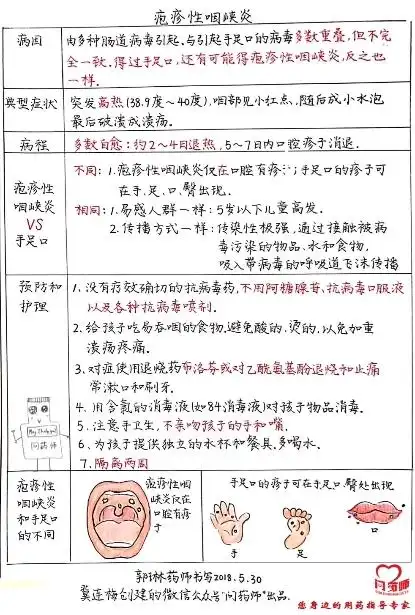 疱疹性咽峡炎
病因
由多种肠道病毒引起.与引起手足口的病毒多数重叠,但不完
全一致.得过手足口,还有可能得疱疹性咽峡炎,反之也
一样.
典型症状
突发高热(38.9度~40度),咽部见小红点,随后成小水泡
最后破溃成溃疡.
病程
多数自愈:约2~4日退热,5~7日内口腔疹子消退.
疱疹性
咽峡炎
VS
手足口
不同:1.疱疹性咽峡炎仅在口腔有疹;手足口的疹子可
在手、足、口、臀出现.
相同:1.易感人群一样:5岁以下儿童高发.
2.传播方式一样:传染性极强,通过接触被病
毒污染的物品、水和食物,
吸入带病毒的呼吸道飞沫传播
预防和
护理
1.没有疗效确切的抗病毒药,不用阿糖腺苷、抗病毒口服液
以及各种抗病毒喷剂.
2.给孩子吃易吞咽的食物.避免酸的,烫的,以免加重
溃疡疼痛.
3.对症使用退烧药布洛芬或对乙酰氨基酚退烧和止痛
常漱口和刷牙.
4.用含氯的消毒液(如84消毒液)对孩子物品消毒.
5.注意手卫生,不亲吻孩子的手和嘴.
6.为孩子提供独立的水杯和餐具.多喝水.
7.隔离两周
问药师
疱疹性
咽峡炎
和手足口
的不同
疱疹性咽
峡炎仅在
口腔有疹
子
手足口的疹子可在手足口、臀处出现
手
足
口
郭琳药师书写2018.5.30
冀连梅创建的微信公众号"问药师"出品.
问药师
您身边的用药指导专家